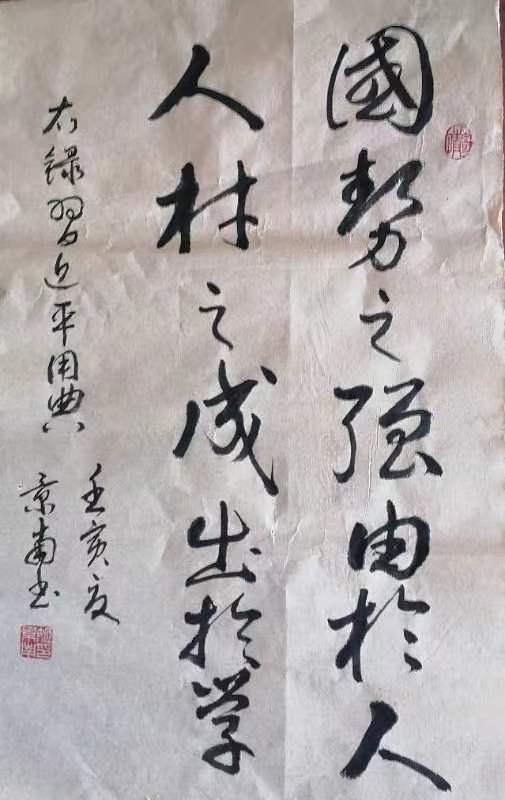 國勢之强由於人
人材之成出於学
右録習近平用典
壬寅夏
景南书